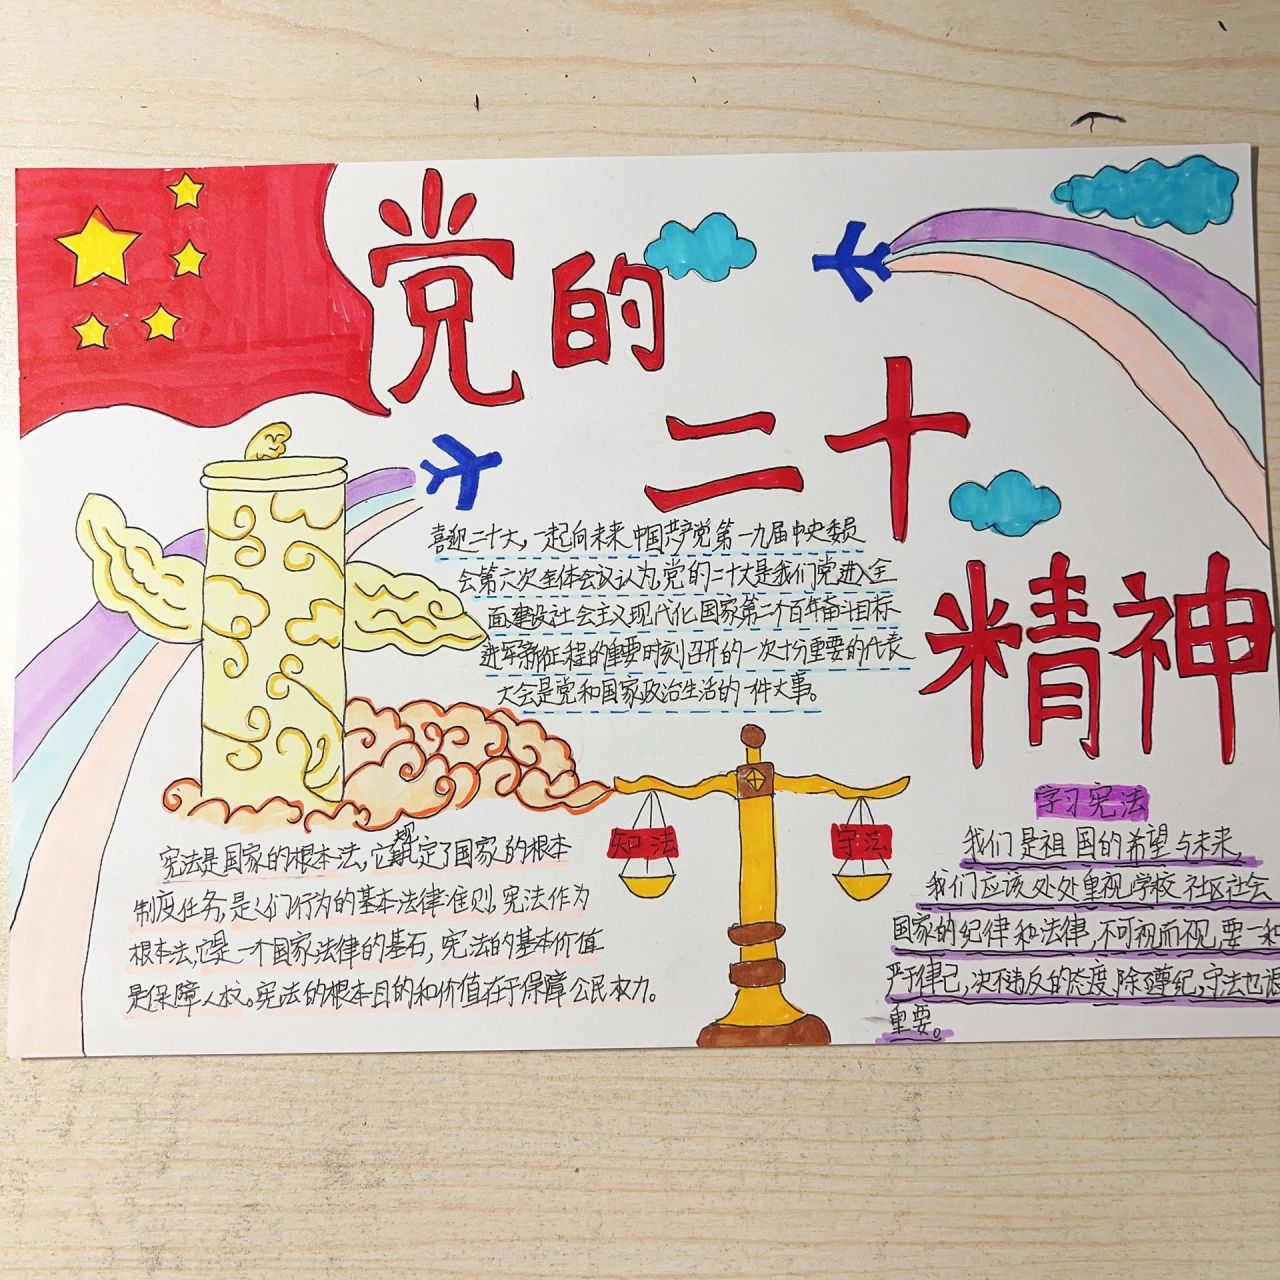 党的
二十
精神
喜迎二十大,一起向未来 中国共产党第一九届中央委员
会第六次全体会议认为,党的二十大是我们党进入全
面建设社会主义现代化国家第二个百年奋斗目标
进军新征程的重要时刻召开的一次十分重要的代表
大会是党和国家政治生活的一件大事。
知法
守法
宪法是国家的根本法,它规定了国家的根本
制度任务,是人们行为的基本法律准则,宪法作为
根本法,它是一个国家法律的基石,宪法的基本价值
是保障人权。宪法的根本目的和价值在于保障公民权力。
学习宪法
我们是祖国的希望与未来,
我们应该处处重视学校社区社会
国家的纪律和法律,不可视而视,要一种
严于律己,决不违反的态度,除了遵纪,守法也很
重要。